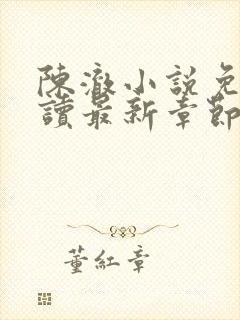 陳澈小說免
讀最新章節
董紅章